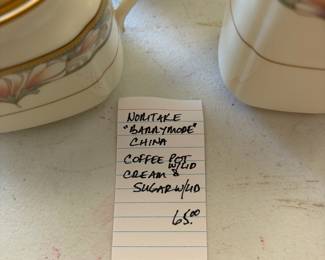 NORITAKE
"BARRYMORE"
CHINA
COFFEE POT
W/LID
CREAM &
SUGAR W/LID
65.00